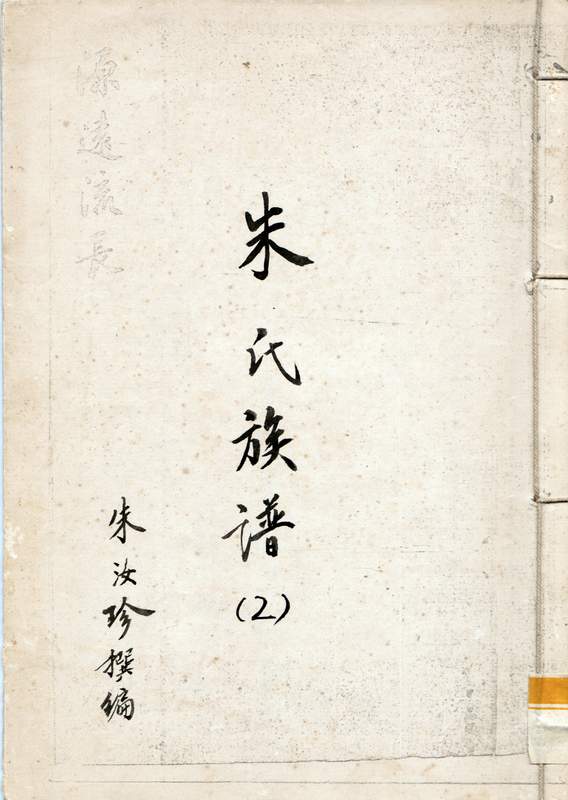 朱氏族谱
(2)
朱汝珍撰编
源远流長